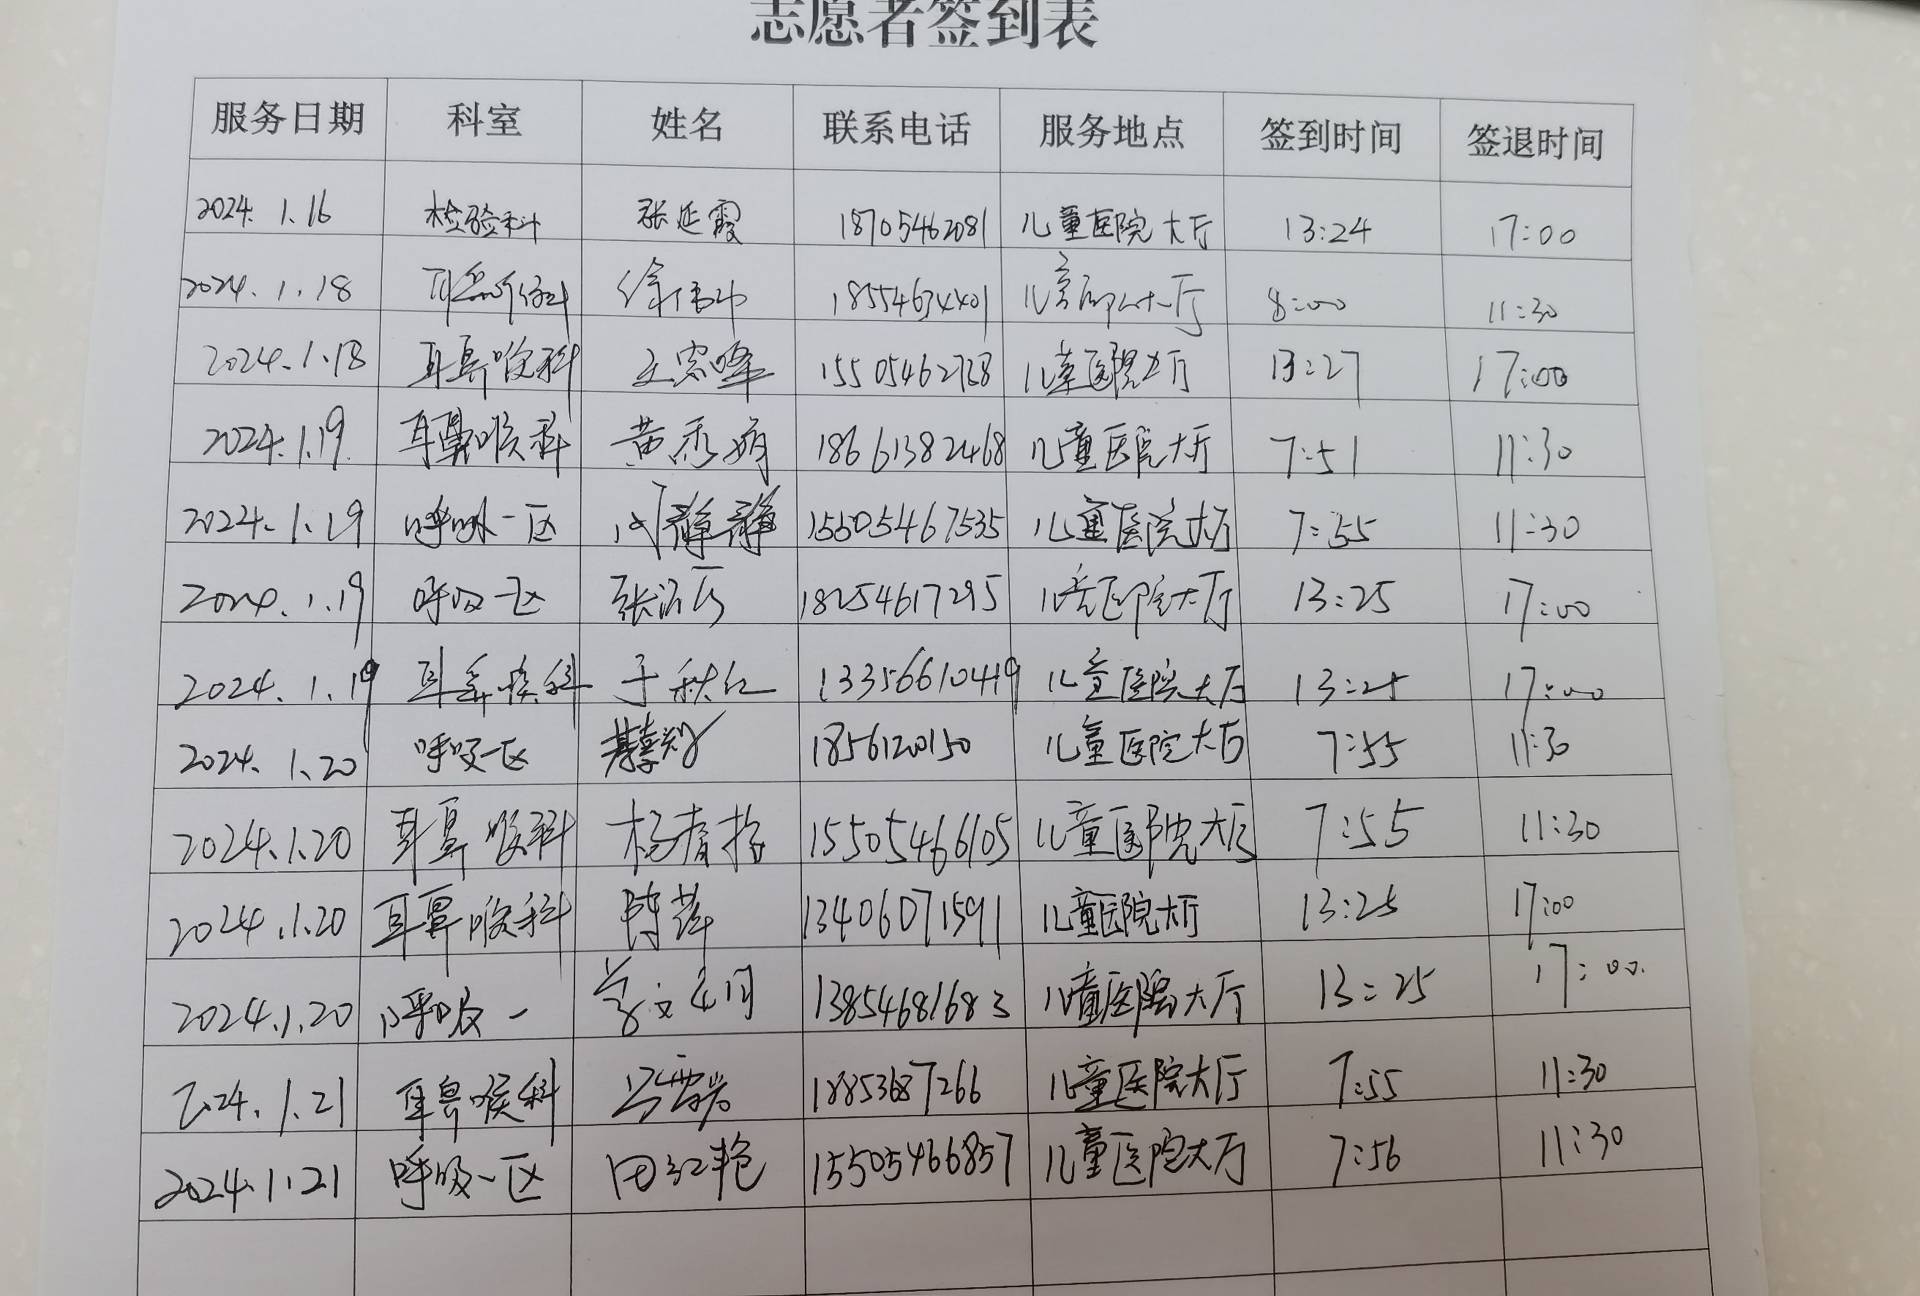 志愿者签到表
服务日期 科室 姓名 联系电话 服务地点 签到时间 签退时间
2024.1.16 检验科 张延霞 18705462081 儿童医院大厅 13:24 17:00
2024.1.18 耳鼻喉科 徐 儿童医院大厅 8:00 11:30
2024.1.18 耳鼻喉科 王 峰 15505462728 儿童医院大厅 13:27 17:00
2024.1.19 耳鼻喉科 黄秀娟 18661382468 儿童医院大厅 7:51 11:30
2024.1.19 呼吸一区 静静 15505467535 儿童医院大厅 7:55 11:30
2024.1.19 呼吸一区 张 18254617295 儿童医院大厅 13:25 17:00
2024.1.19 耳鼻喉科 于秋红 13356610419 儿童医院大厅 13:25 17:00
2024.1.20 呼吸一区 1856120150 儿童医院大厅 7:55 11:30
2024.1.20 耳鼻喉科 杨 15505466105 儿童医院大厅 7:55 11:30
2024.1.20 耳鼻喉科 陈萍 13406071591 儿童医院大厅 13:25 17:00
2024.1.20 呼吸一 文娟 13854681683 儿童医院大厅 13:25 17:00.
2024.1.21 耳鼻喉科 马 岩 18853687266 儿童医院大厅 7:55 11:30
2024.1.21 呼吸一区 田红艳 15505466857 儿童医院大厅 7:56 11:30